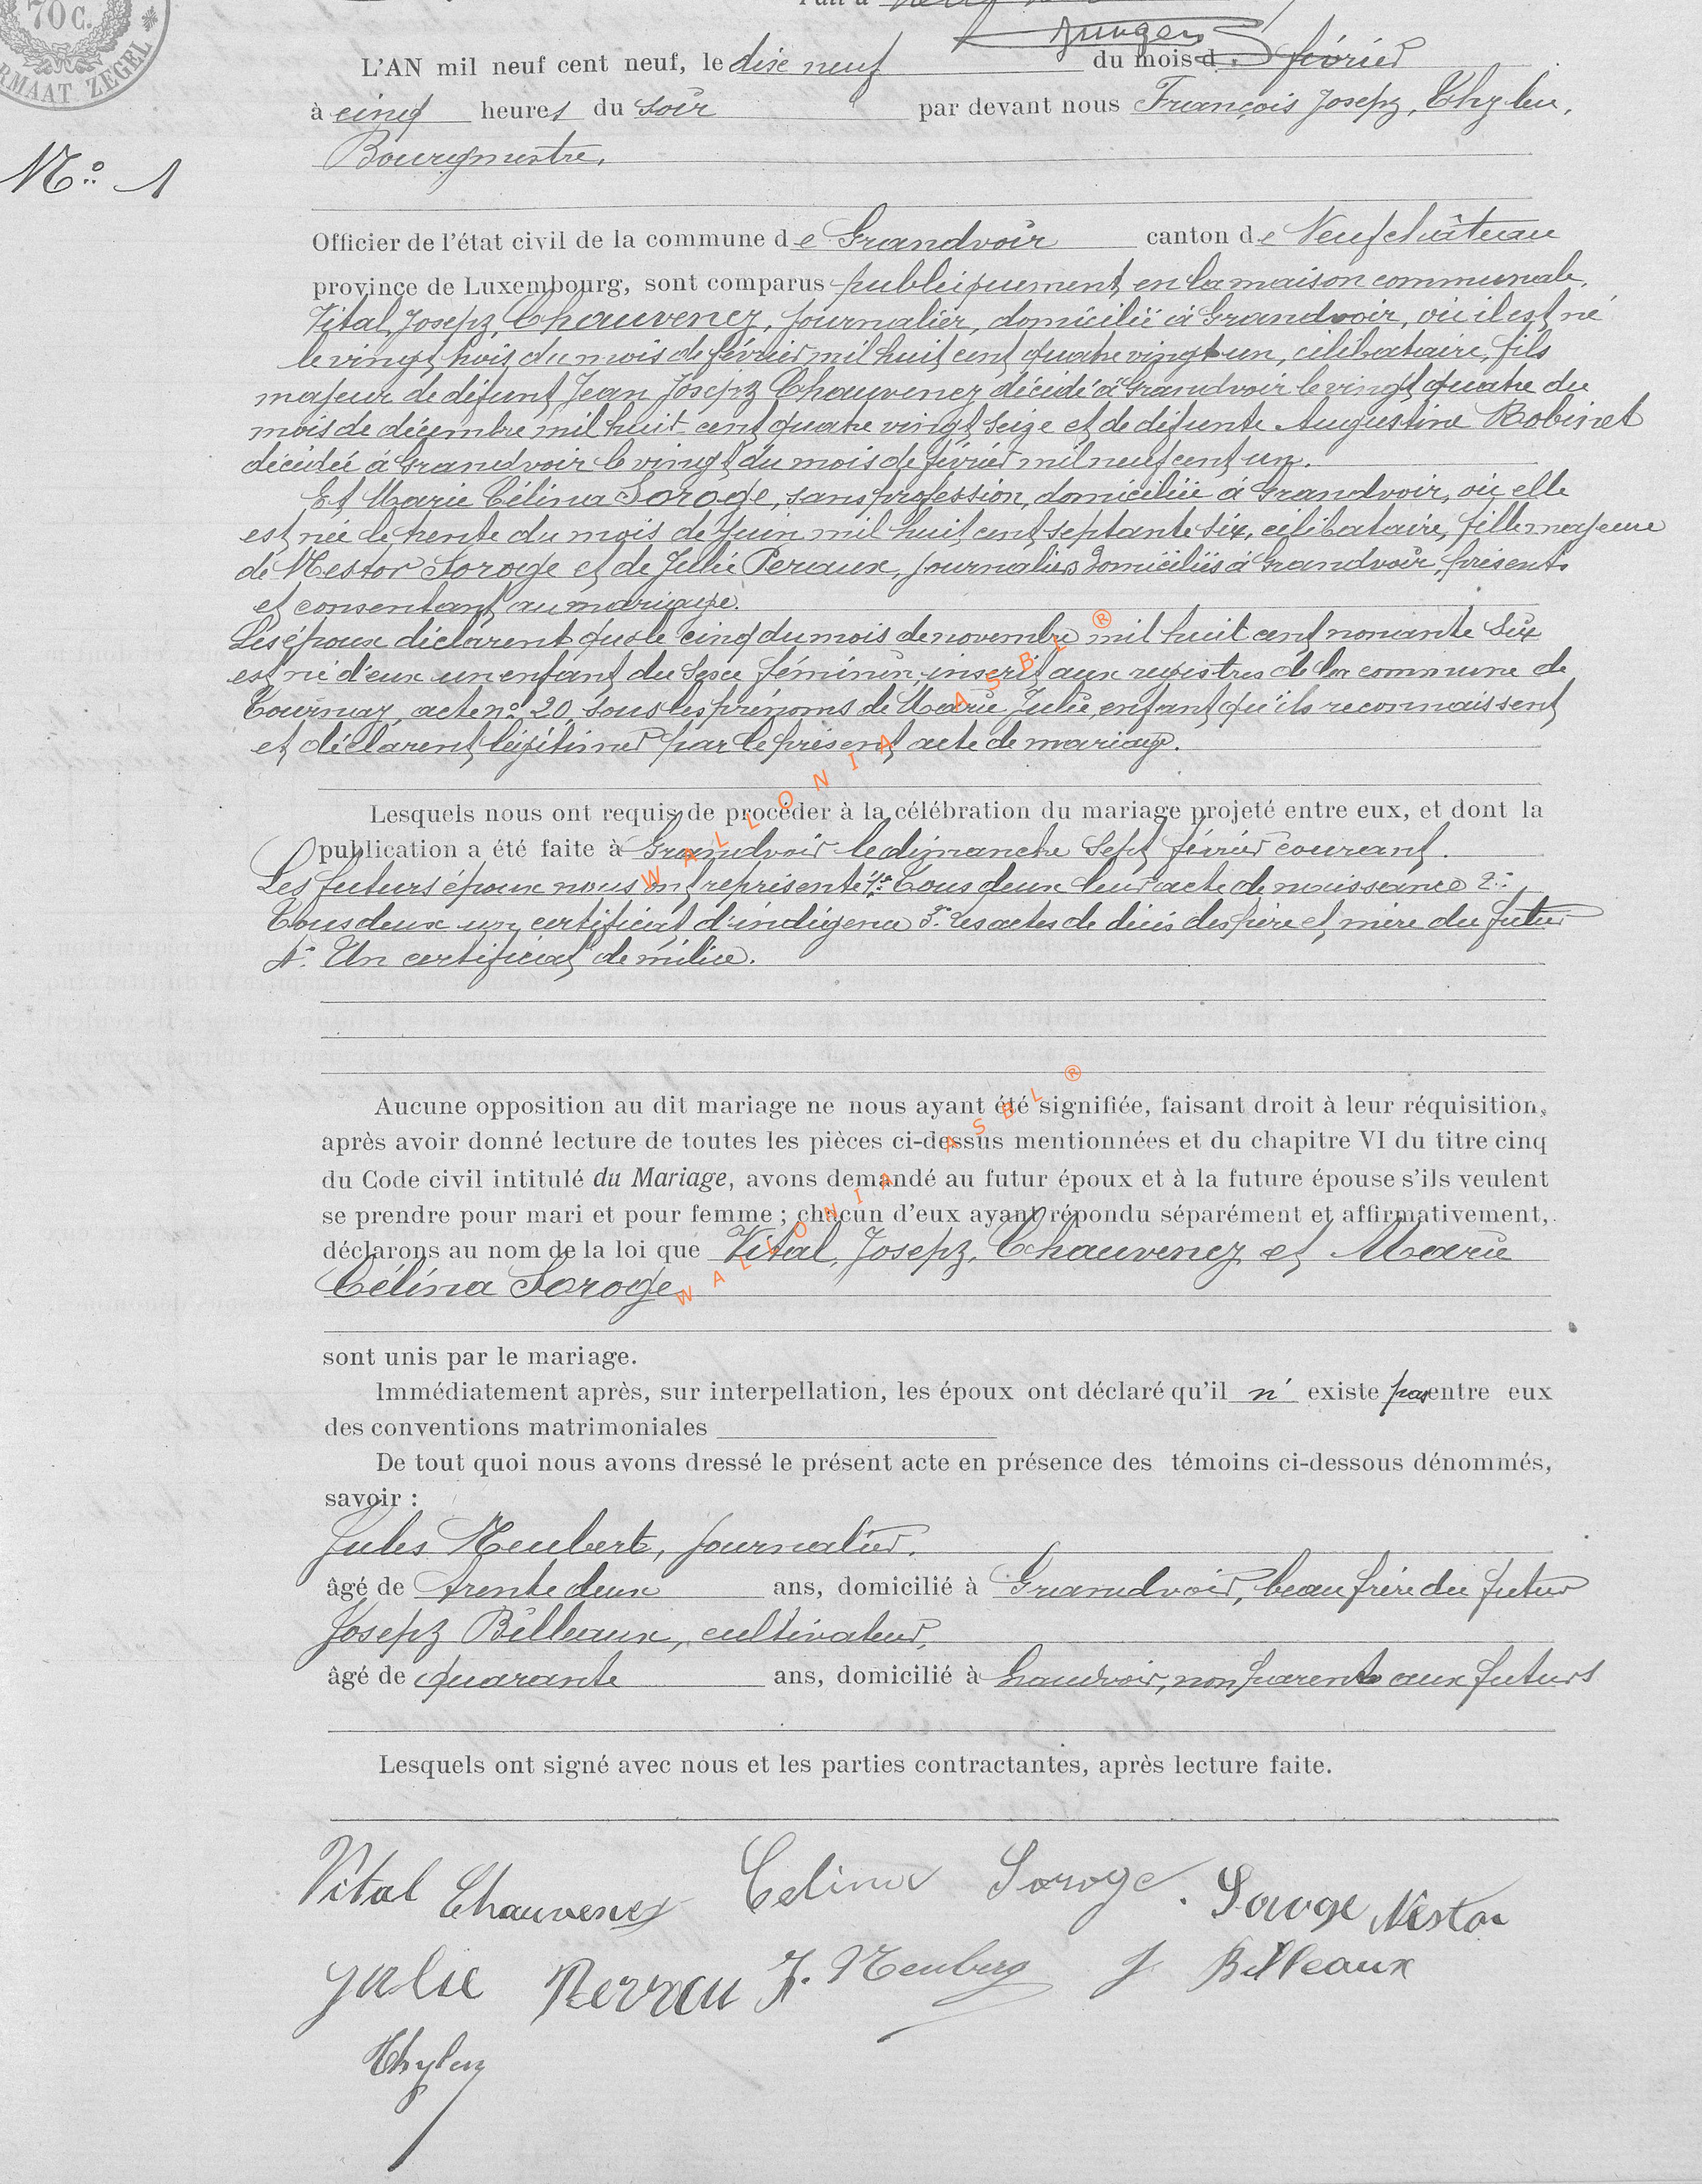 70 C.
RMAAT ZEGEL
L'AN mil neuf cent neuf, le dix neuf du mois d février
à cinq heures du soir par devant nous François Joseph, Thylen,
Bourgmestre.
No. 1
Officier de l'état civil de la commune de Grandvoir canton de Neufchâteau
province de Luxembourg, sont comparus publiquement en la maison communale,
Vital, Joseph, Chauvenez, journalier, domicilié à Grandvoir, où il est né
le vingt trois du mois de février mil huit cent quatre vingt un, célibataire, fils
majeur de défunt Jean Joseph Chauvenez décédé à Grandvoir le vingt quatre du
mois de décembre mil huit cent quatre vingt seize et de défunte Augustine Robinet
décédée à Grandvoir le vingt du mois de février mil neuf cent un.
Et Marie Célina Soroge, sans profession, domiciliée à Grandvoir, où elle
est née le trente du mois de juin mil huit cent septante six, célibataire, fille majeure
de Nestor Soroge et de Julie Periaux, journaliers domiciliés à Grandvoir, présents
et consentant au mariage.
Les époux déclarent que le cinq du mois de novembre mil huit cent nonante six
est né d'eux un enfant du sexe féminin, inscrit aux registres de la commune de
Tournay, acte no. 20, sous les prénoms de Marie Julie, enfant qu'ils reconnaissent
et déclarent légitimer par le présent acte de mariage.
WALLONIA ASBL ®
Lesquels nous ont requis de procéder à la célébration du mariage projeté entre eux, et dont la
publication a été faite à Grandvoir le dimanche sept février courant.
Les futurs époux nous ont représenté 1.º Tous deux leur acte de naissance 2.º
Tous deux un certificat d'indigence 3.º Les actes de décès des père et mère du futur
4.º Un certificat de milice.
Aucune opposition au dit mariage ne nous ayant été signifiée, faisant droit à leur réquisition,
après avoir donné lecture de toutes les pièces ci-dessus mentionnées et du chapitre VI du titre cinq
du Code civil intitulé du Mariage, avons demandé au futur époux et à la future épouse s'ils veulent
se prendre pour mari et pour femme ; chacun d'eux ayant répondu séparément et affirmativement,
déclarons au nom de la loi que Vital, Joseph, Chauvenez et Marie
Célina Soroge
WALLONIA ASBL ®
sont unis par le mariage.
Immédiatement après, sur interpellation, les époux ont déclaré qu'il n' existe pas entre eux
des conventions matrimoniales
De tout quoi nous avons dressé le présent acte en présence des témoins ci-dessous dénommés,
savoir :
Jules Neubert, journalier.
âgé de trente deux ans, domicilié à Grandvoir, beau frère du futur
Joseph Billeaux, cultivateur,
âgé de quarante ans, domicilié à Grandvoir, non parent aux futurs
Lesquels ont signé avec nous et les parties contractantes, après lecture faite.
Vital Chauvenez Celina Soroge. Soroge Nestor
Julie J. Neuberg J Billeaux
Thylen